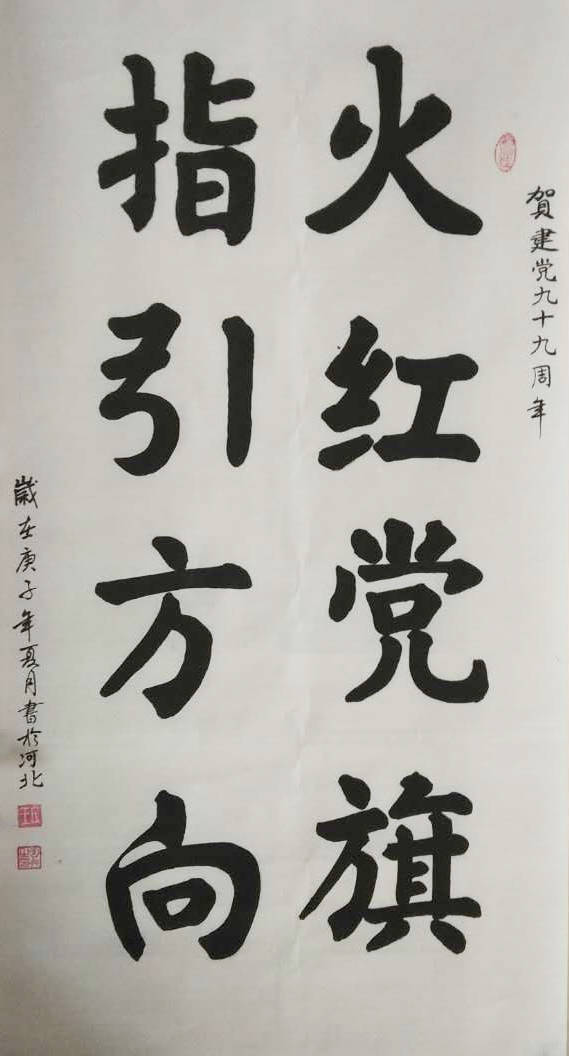 賀建党九十九周年
火红党旗
指引方向
歳在庚子年夏月書於河北